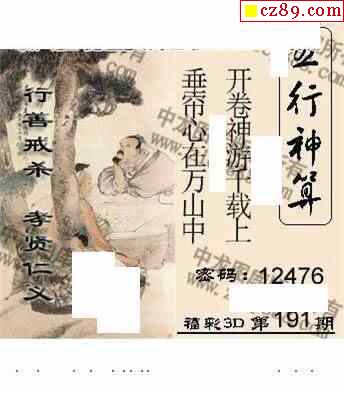 cz89.com
行神算
开卷神游千载上
垂帘心在万山中
行善戒杀 孝贤仁义
密码：12476
福彩3D 第191期